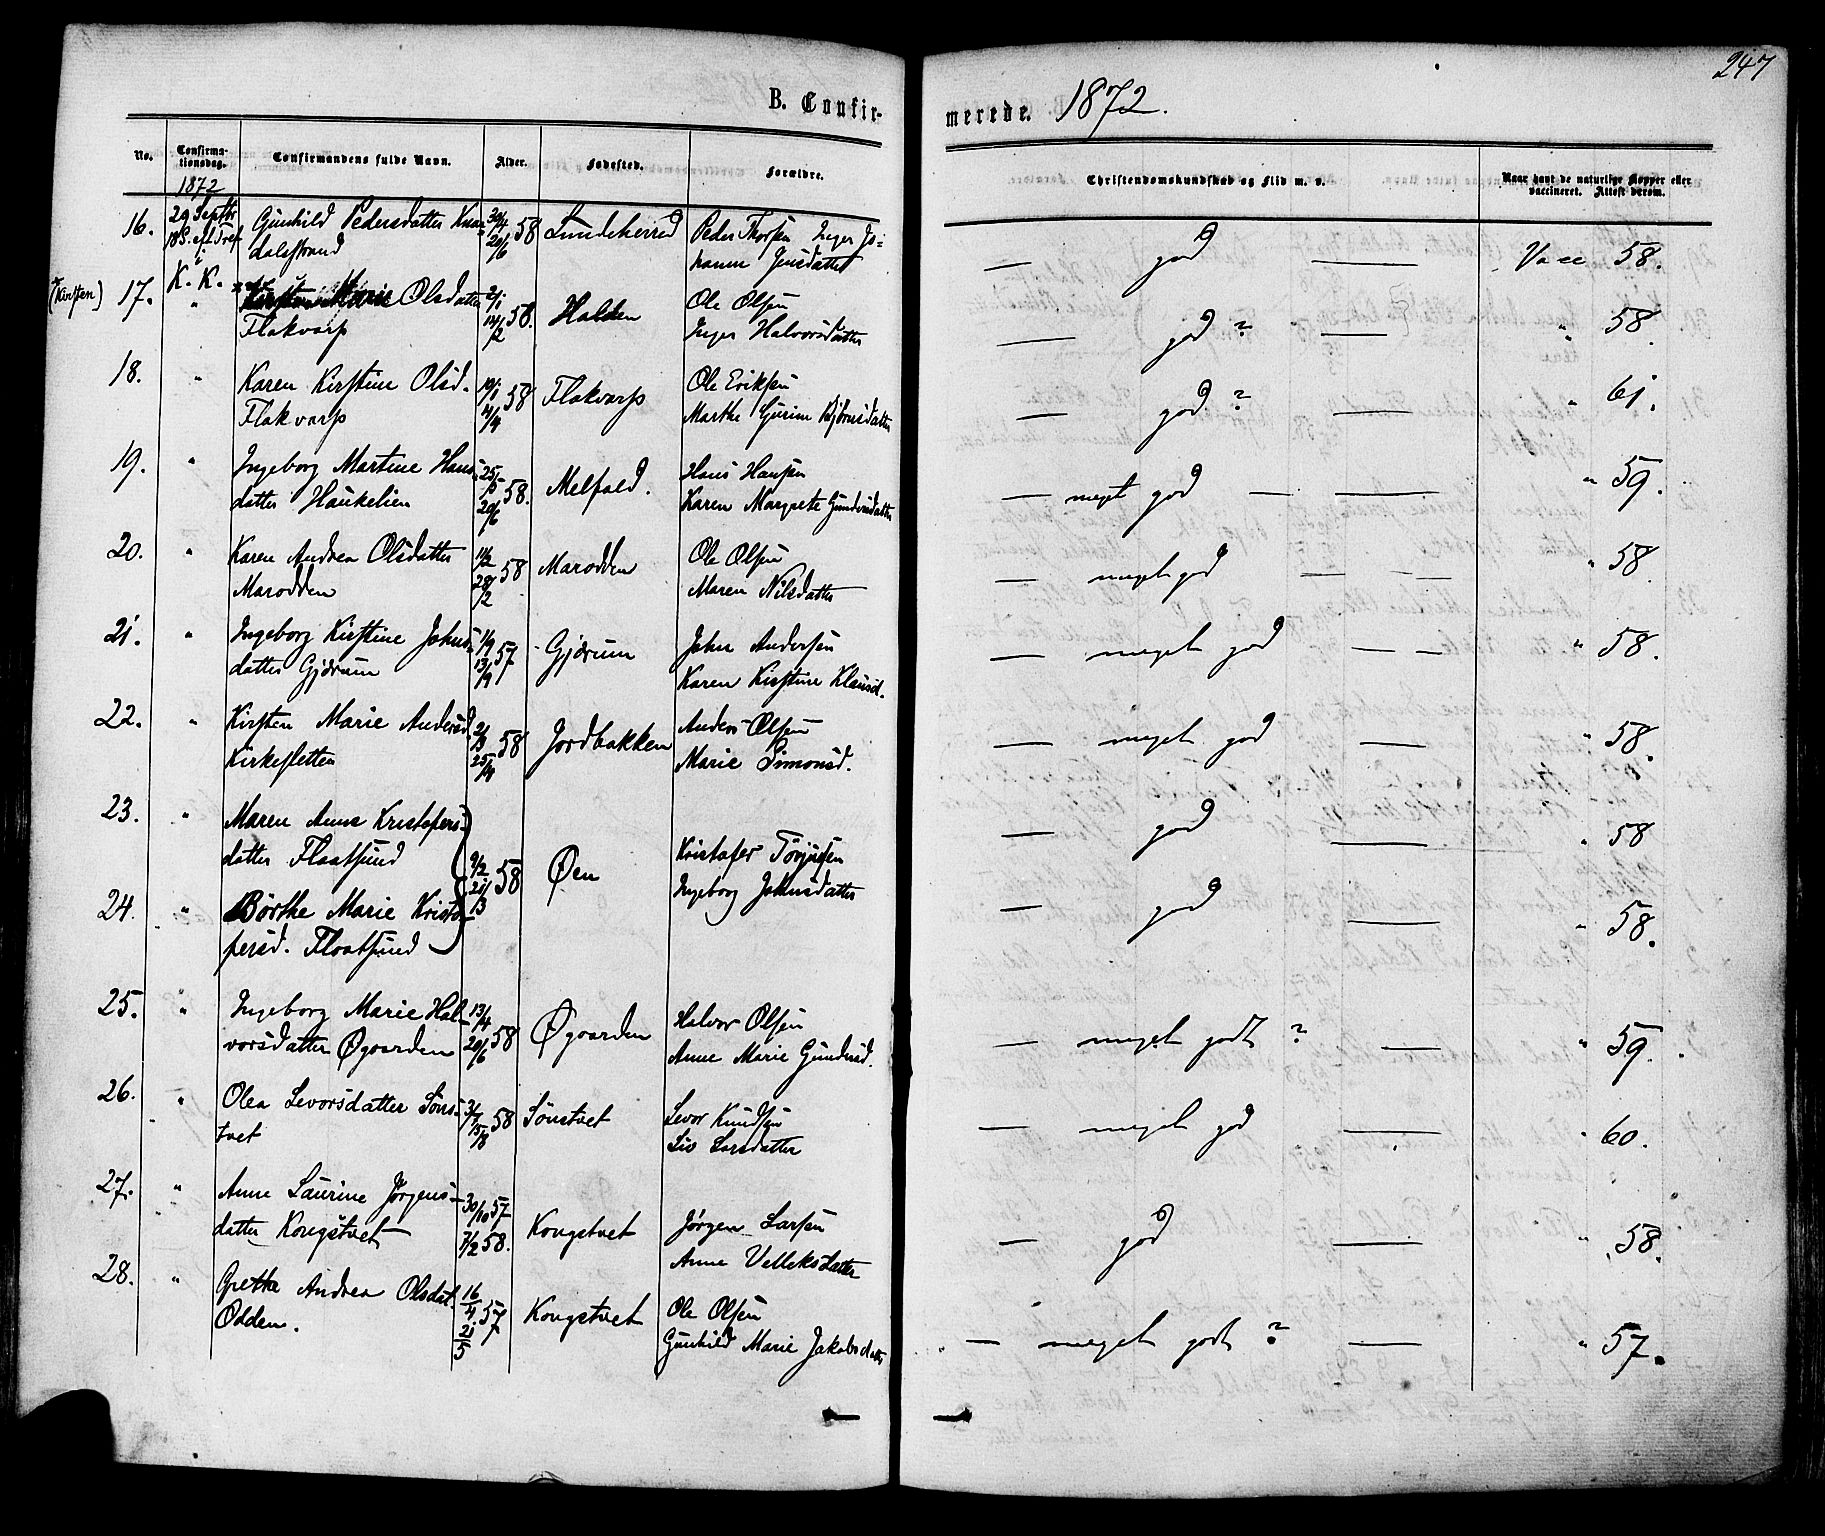 247
B. Confir-
merede. 1872.
No.
Confirma-
tionsdag.
Confirmandens fulde Navn.
Alder.
Fødested.
Forældre.
Christendomskundskab og Flid m. v.
Naar havt de naturlige Kopper eller
vaccineret. Attest derom.
1872
16. 29 Septbr Gunhild Pedersdatter Knar= 30/4 58 Lundeherred Peder Thorsen Inger Jo=
18 S. eft. Tref. dalsstrand 20/6 hanne Jensdatter — god — Vacc 58.
K. K.
(Kirsten) 17. " Marie Olsdatter 2/1 58. Halden Ole Olsen
Flakvarp 14/2 Inger Halvorsdatter — god ? — " 58.
18. " Karen Kirstine Olsd. 19/1 58 Flakvarp Ole Eriksen
Flakvarp 4/4 Marthe Gurine Bjørnsdatter — god ? — " 61.
19. " Ingeborg Martine Hans= 25/5 58. Melfald. Hans Hansen
datter Haukelien 20/6 Karen Margrete Gundersdatter — meget god — — " 59.
20. " Karen Andrea Olsdatter 11/2 58 Marodden Ole Olsen
Marodden 28/2 Maren Nilsdatter — meget god — — " 58.
21. " Ingeborg Kirstine Johns= 1/9 57 Gjærum John Andersen
datter Gjærum 13/9 Karen Kirstine Klausd. — meget god — — " 58.
22. " Kirsten Marie Andersd. 2/3 58 Jordbakken Anders Olsen
Kirkesletten 25/4 Marie Simonsd. — meget god — " 58.
23. " Maren Anne Kristofers=
datter Flaatsund 9/2 58 Øen Kristofer Torjusen — god — " 58
24. " Børthe Marie Kristo= 21/3 Ingeborg Johnsdatter
fersd. Flaatsund — god — " 58.
25. " Ingeborg Marie Hal= 13/4 58 Øgaarden Halvor Olsen
vorsdatter Øgaarden 20/6 Anne Marie Gundersd. — meget godt ? — " 59.
26. " Olea Levorsdatter Søns= 3/7 58 Sønstvet Levor Knudsen
tvet 15/8 Liv Larsdatter — meget god — " 60.
27. " Anne Laurine Jørgens= 30/10 57 Kongstvet Jørgen Larsen
datter Kongstvet 7/2 58. Anne Velleksdatter — god — " 58.
28. " Grethe Andrea Olsdat. 16/4 57 Kongstvet Ole Olsen
Odden. 21/5 Gunhild Marie Jakobsdatter — meget godt ? — " 57.